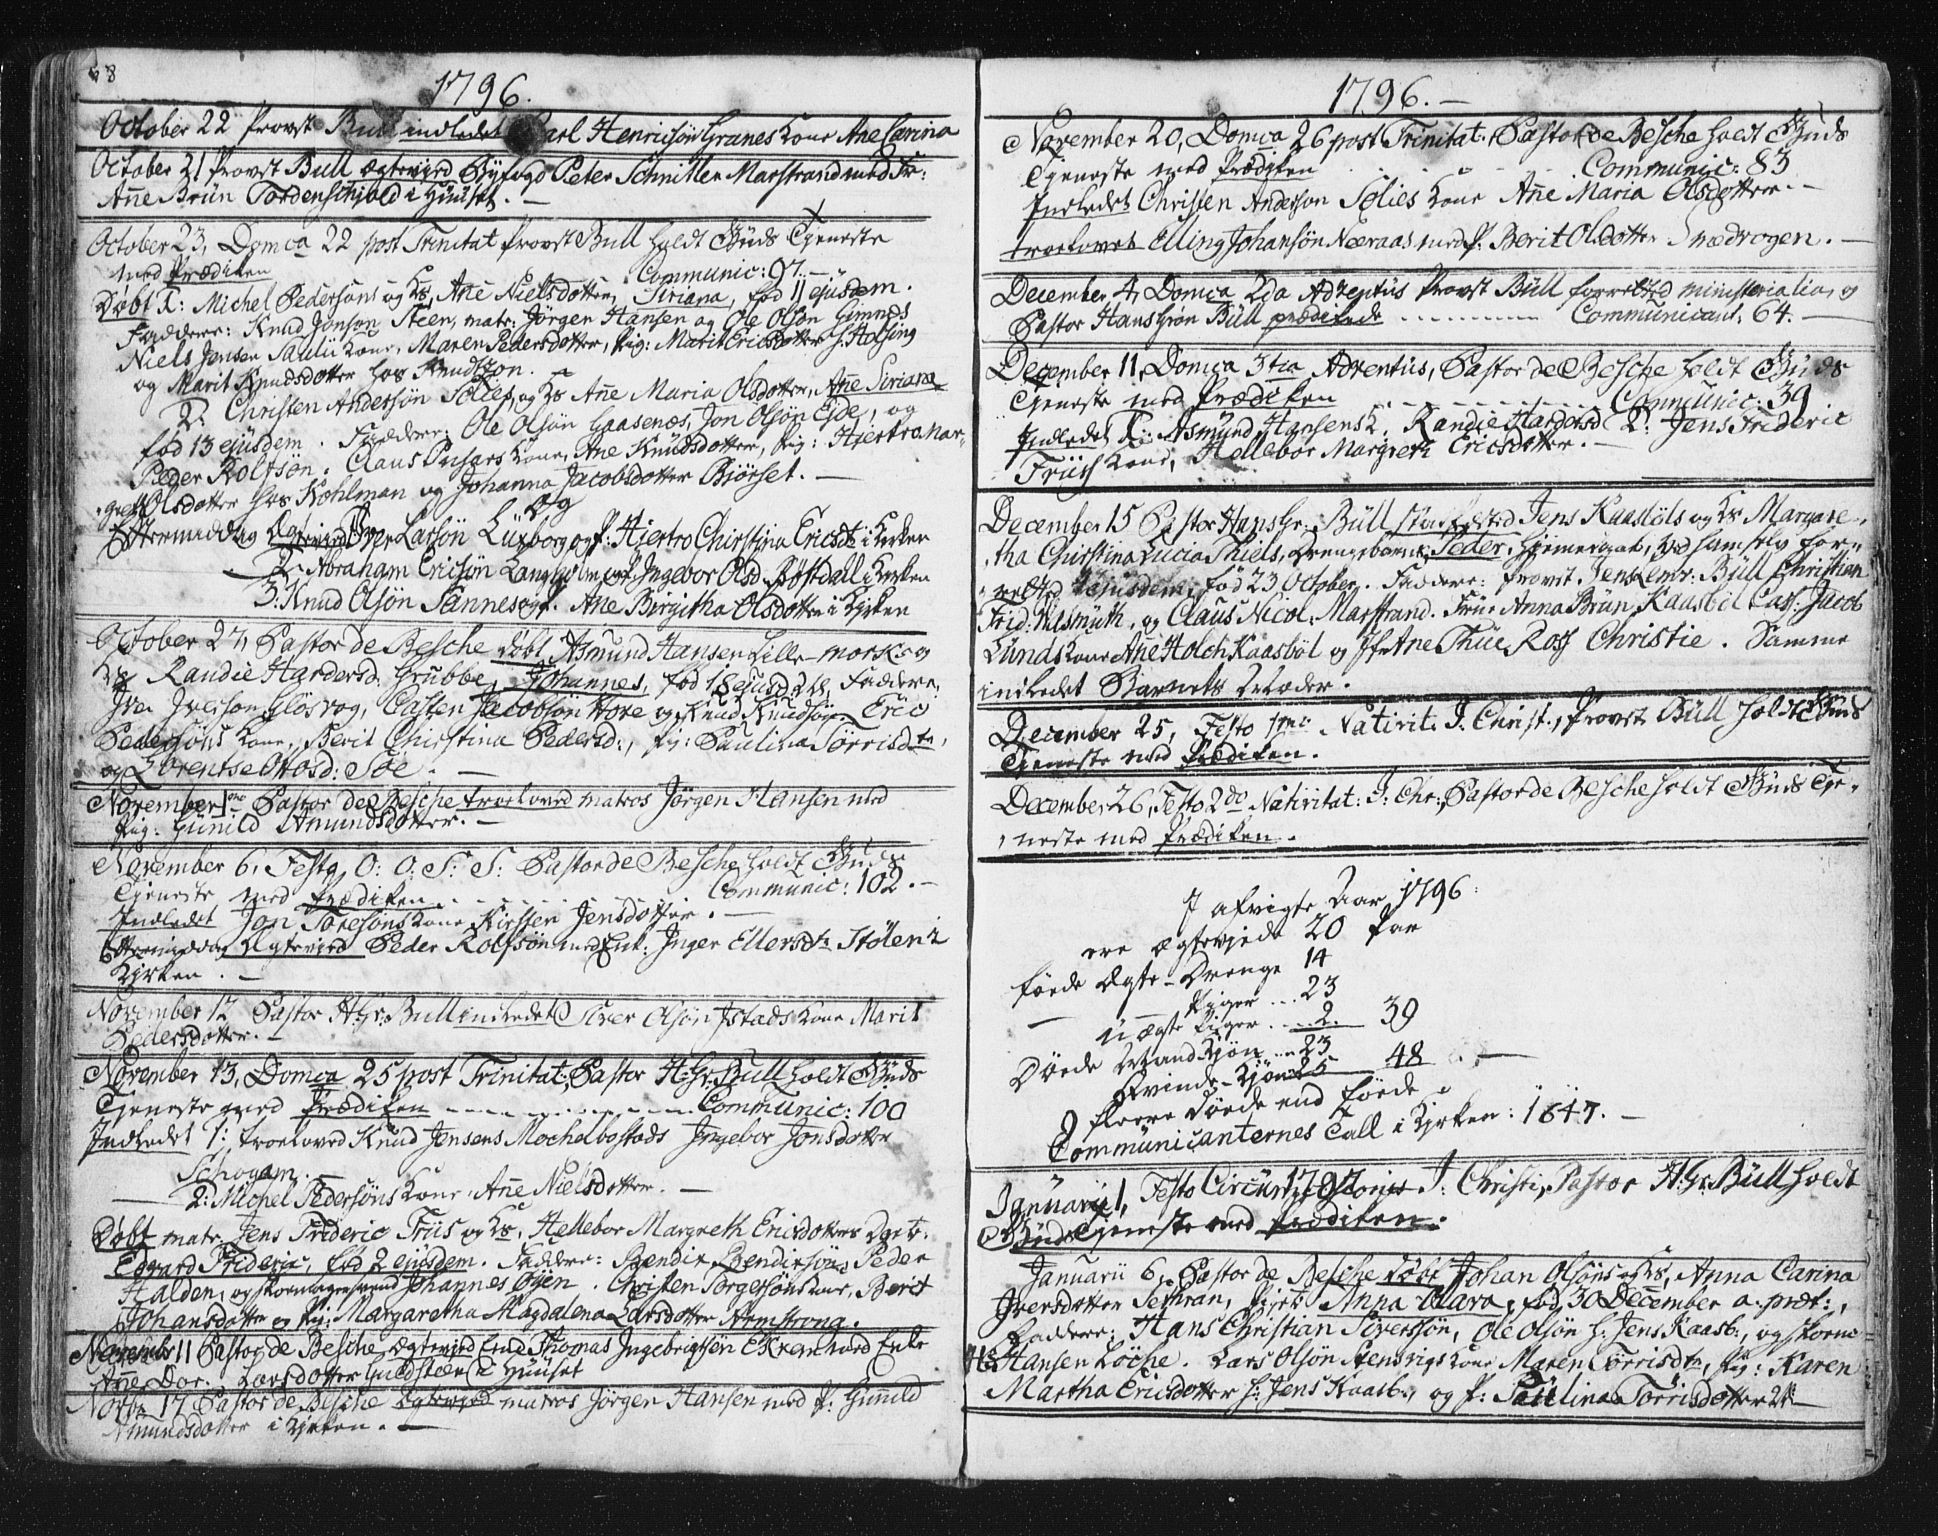 68
1796.
October 22 Provst Bull indledet Carl Henricsön Granes Kone Ane Carina
October 21 Provst Bull Ægtevied Byfogd Peter Schnitler Marstrand med Fr:
Añe Brün Tordenschjold i Huuset. —
October 23, Domca 22 post Trinitat Provst Bull holdt Guds Tjeneste
med Prædiken Communic: 97. —
Døbt 1: Michel Pedersöns og Ks Ane Nielsdotter, Siriana, fød 11 ejusdem.
Faddere: Knud Jonsön Steen, matr: Jörgen Hansen og Ole Olsön Gimnes
Niels Jensen Kone, Maren Pedersdotter, Pig: Marit Ericsdotter h. Holsing
og Marit Knudsdotter hos Knudtzon.
2: Christen Andersön Solies, og Ks Añe Maria Olsdotter, Añe Siriana
fød 13 ejusdem. Faddere: Ole Olsön Gaasenæs, Jon Olsön Eide, og
Peder Rolfsön. Claus Kone, Ane Knudsdotter, Pig: Hjertro Mar-
greth Olsdotter hos Kohlman og Johanna Jacobsdotter Björset. —
Og
Eftermiddag Ægteviед Larsön Luxborg og P: Hjertro Christina Ericsdtr i Kirken
2. Abraham Ericsön Langholm og P. Ingebor Olsd. i Kirken
3. Knud Olsön Sannes og P. Ane Birgitha Olsdotter i Kirken
October 27, Pastor de Besche døbt Asmund Hansen Lille-mork: og
Ks Randie Hardersd: Grubbe, Johannes, fød 18 ejusd: Faddere,
Iver Iversön Glösvog, Casten Jacobsön Hove og Knud Knudsön, Eric
Pedersöns Kone, Berit Christina Pedersd:, Pig: Paulina Törrisdtr,
og Lorentse Ottosd: Söe. —
November 1 Pastor de Besche troeloved matros Jörgen Hansen med
Pig: Günild Amundsdotter. —
November 6, Festo O: O: S: S: Pastor de Besche holdt Guds
Tjeneste med Prædiken. Communic: 102. —
Indledet Jon Toresöns Kone Kirsten Jensdotter. —
Eftermiddag Ægtevied Peder Rolfsön med Enk: Inger Ellersdtr Stölen i
Kirken. —
November 12 Pastor H. Gr: Bull indledet Siver Olsön Istads Kone Marit
Pedersdotter. —
November 13, Domca 25 post Trinitat: Pastor H: Gr: Bull holdt Guds
Tjeneste med Prædiken Communic: 100
Indledet 1: troeloved Knud Jensens Mochelbostads Ingebor Jonsdotter
Schogam. —
2: Michel Pedersöns Kone Añe Nielsdotter. —
Døbt matr Jens Frideric Früs og Ks, Hellebor Margreth Ericsdotters
Edvard Frideric, fød 2 ejusdem. Faddere: Bendix Bendixsön, Peder
Halden, og Skomagersvend Johannes Öyen. Christen Torgersöns Kone, Berit
Johansdotter og Pig: Margaretha Magdalena Larsdotter Armstrong.
November 11 Pastor de Besche Ægtevied Enk: Thomas Ingebrigtsön Ekrem med Enke
Añe Dor. Larsdotter i Huuset
Novbr 17 Pastor de Besche Ægteviet matros Jörgen Hansen med P. Gunild
Amundsdotter i Kirken. —
1796. —
November 20, Domca 26 post Trinitat: Pastor de Besche holdt Guds
Tjeneste med Prædiken Communic: 83
Indledet Christen Anderson Solies Kone Añe Maria Olsdotter. —
troelovet Elling Johansön Neeraas med P: Berit Olsdotter Snedrogen. —
December 4, Domca 2da Adventus Provst Bull forretted ministerialia, og
Pastor Hans Grøn Bull prædikede Communicant: 64. —
December 11, Domca 3tia Adventus, Pastor de Besche holdt Guds
Tjeneste med Prædiken Communic: 39
Indledet 1: Asmund Hansens K. Randie Hardersd 2: Jens Frideric
Früs Kone, Hellebor Margreth Ericsdotter. —
December 15 Pastor Hans Gr: Bull stadfested Jens Kaasböls og Ks Margare-
tha Christina Lucia Thiels, Drengebarn, Peder, hjemmedøbt, ved samme for-
retted ejusdem, fød 23 October. Faddere: Provst Jens Bull, Christian
Frid: Vilsmüth, og Claus Nicol: Marstrand. Frue Anna Brün, Kaasböl Jacob
Lunds Kone Añe Holch Kaasböl og Jfr Ane Thue Ross Christie. Samme
indledet Barnets Moder.
December 25, Festo Nativit: J. Christ:, Provst Bull holdt Guds
Tjeneste med Prædiken.
December 26, Festo 2do Nativitat: J: Chr:, Pastor de Besche holdt Guds Tje-
neste med Prædiken.
I afvigte Aar 1796:
ere ægteviede 20 Par
fødde Ægte-Drenge 14
Piger ... 23
uægte Piger ... 2. 39
Døde Mandkjön ... 23
Qvinde-Kjön 25 48. —
9 flere døde end fødde.
Communicanternes Tall i Kirken: 1847. —
1797
Januarii 1, Festo Circumcisionis J. Christi, Pastor H. Gr: Bull holdt
Guds Tjeneste med Prædiken.
Januarii 6, Pastor de Besche døbt Johan Olsöns og Ks, Anna Carina
Iversdotter Semran, Anna Olava, fød 30 December a. præt:,
Faddere: Hans Christian Siversön, Ole Olsön h. Jens Kaasb:, og
Hansen Löche. Lars Olsön Stensvigs Kone Maren Törrisdtr, Pig: Karen
Martha Ericsdotter h: Jens Kaasb:, og P: Paulina Törrisdotter